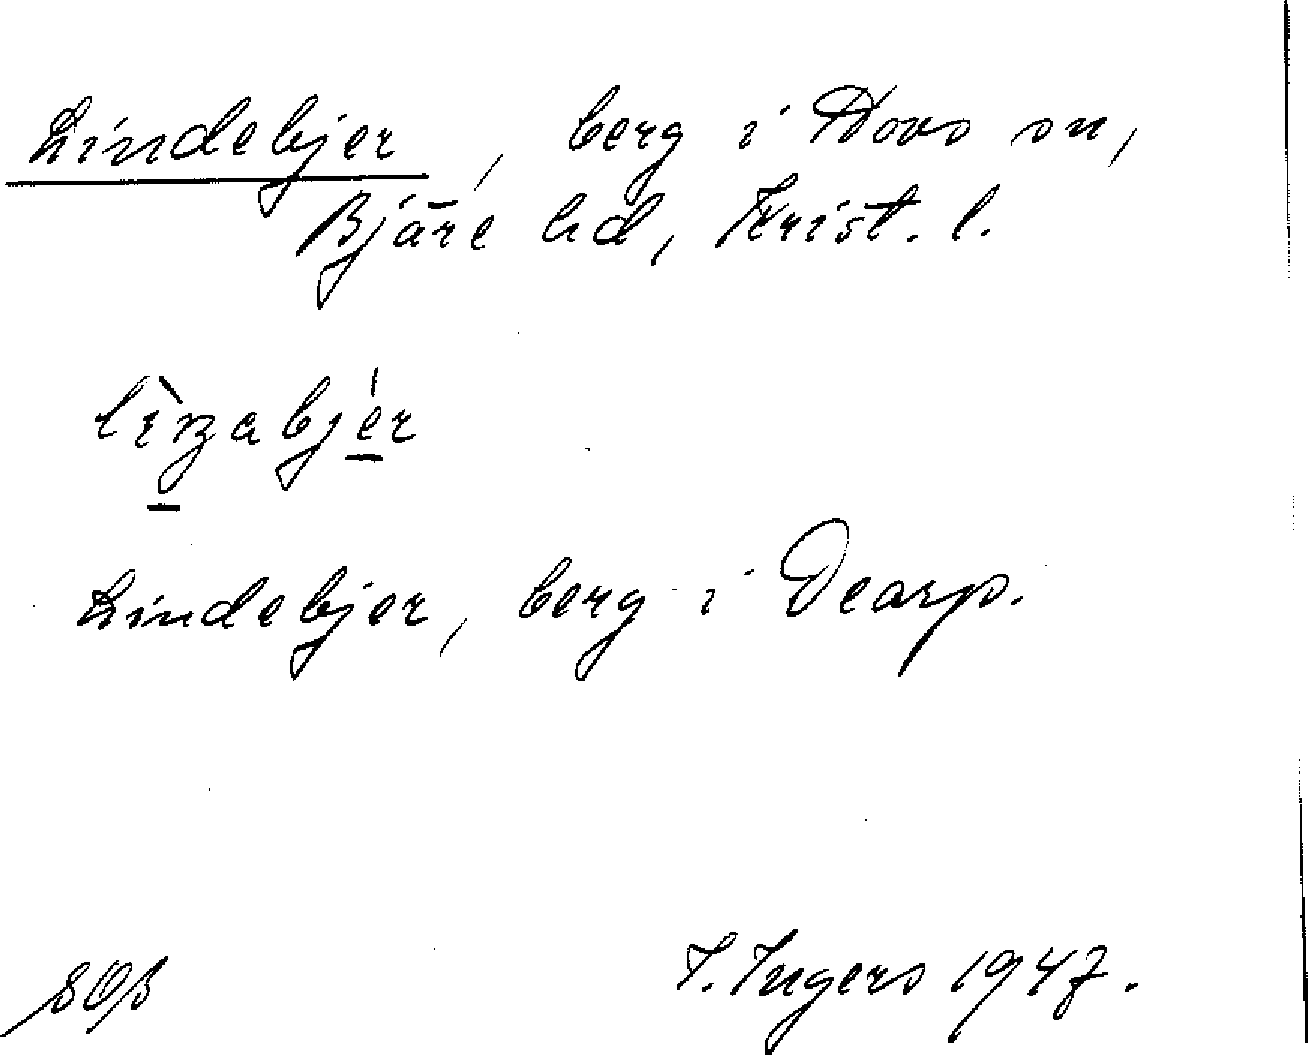 Lindebjer, berg i Hovs sn,
Bjäre hd, Krist. l.
Lindebjer, berg i Dearp.
I. Ingers 1947.